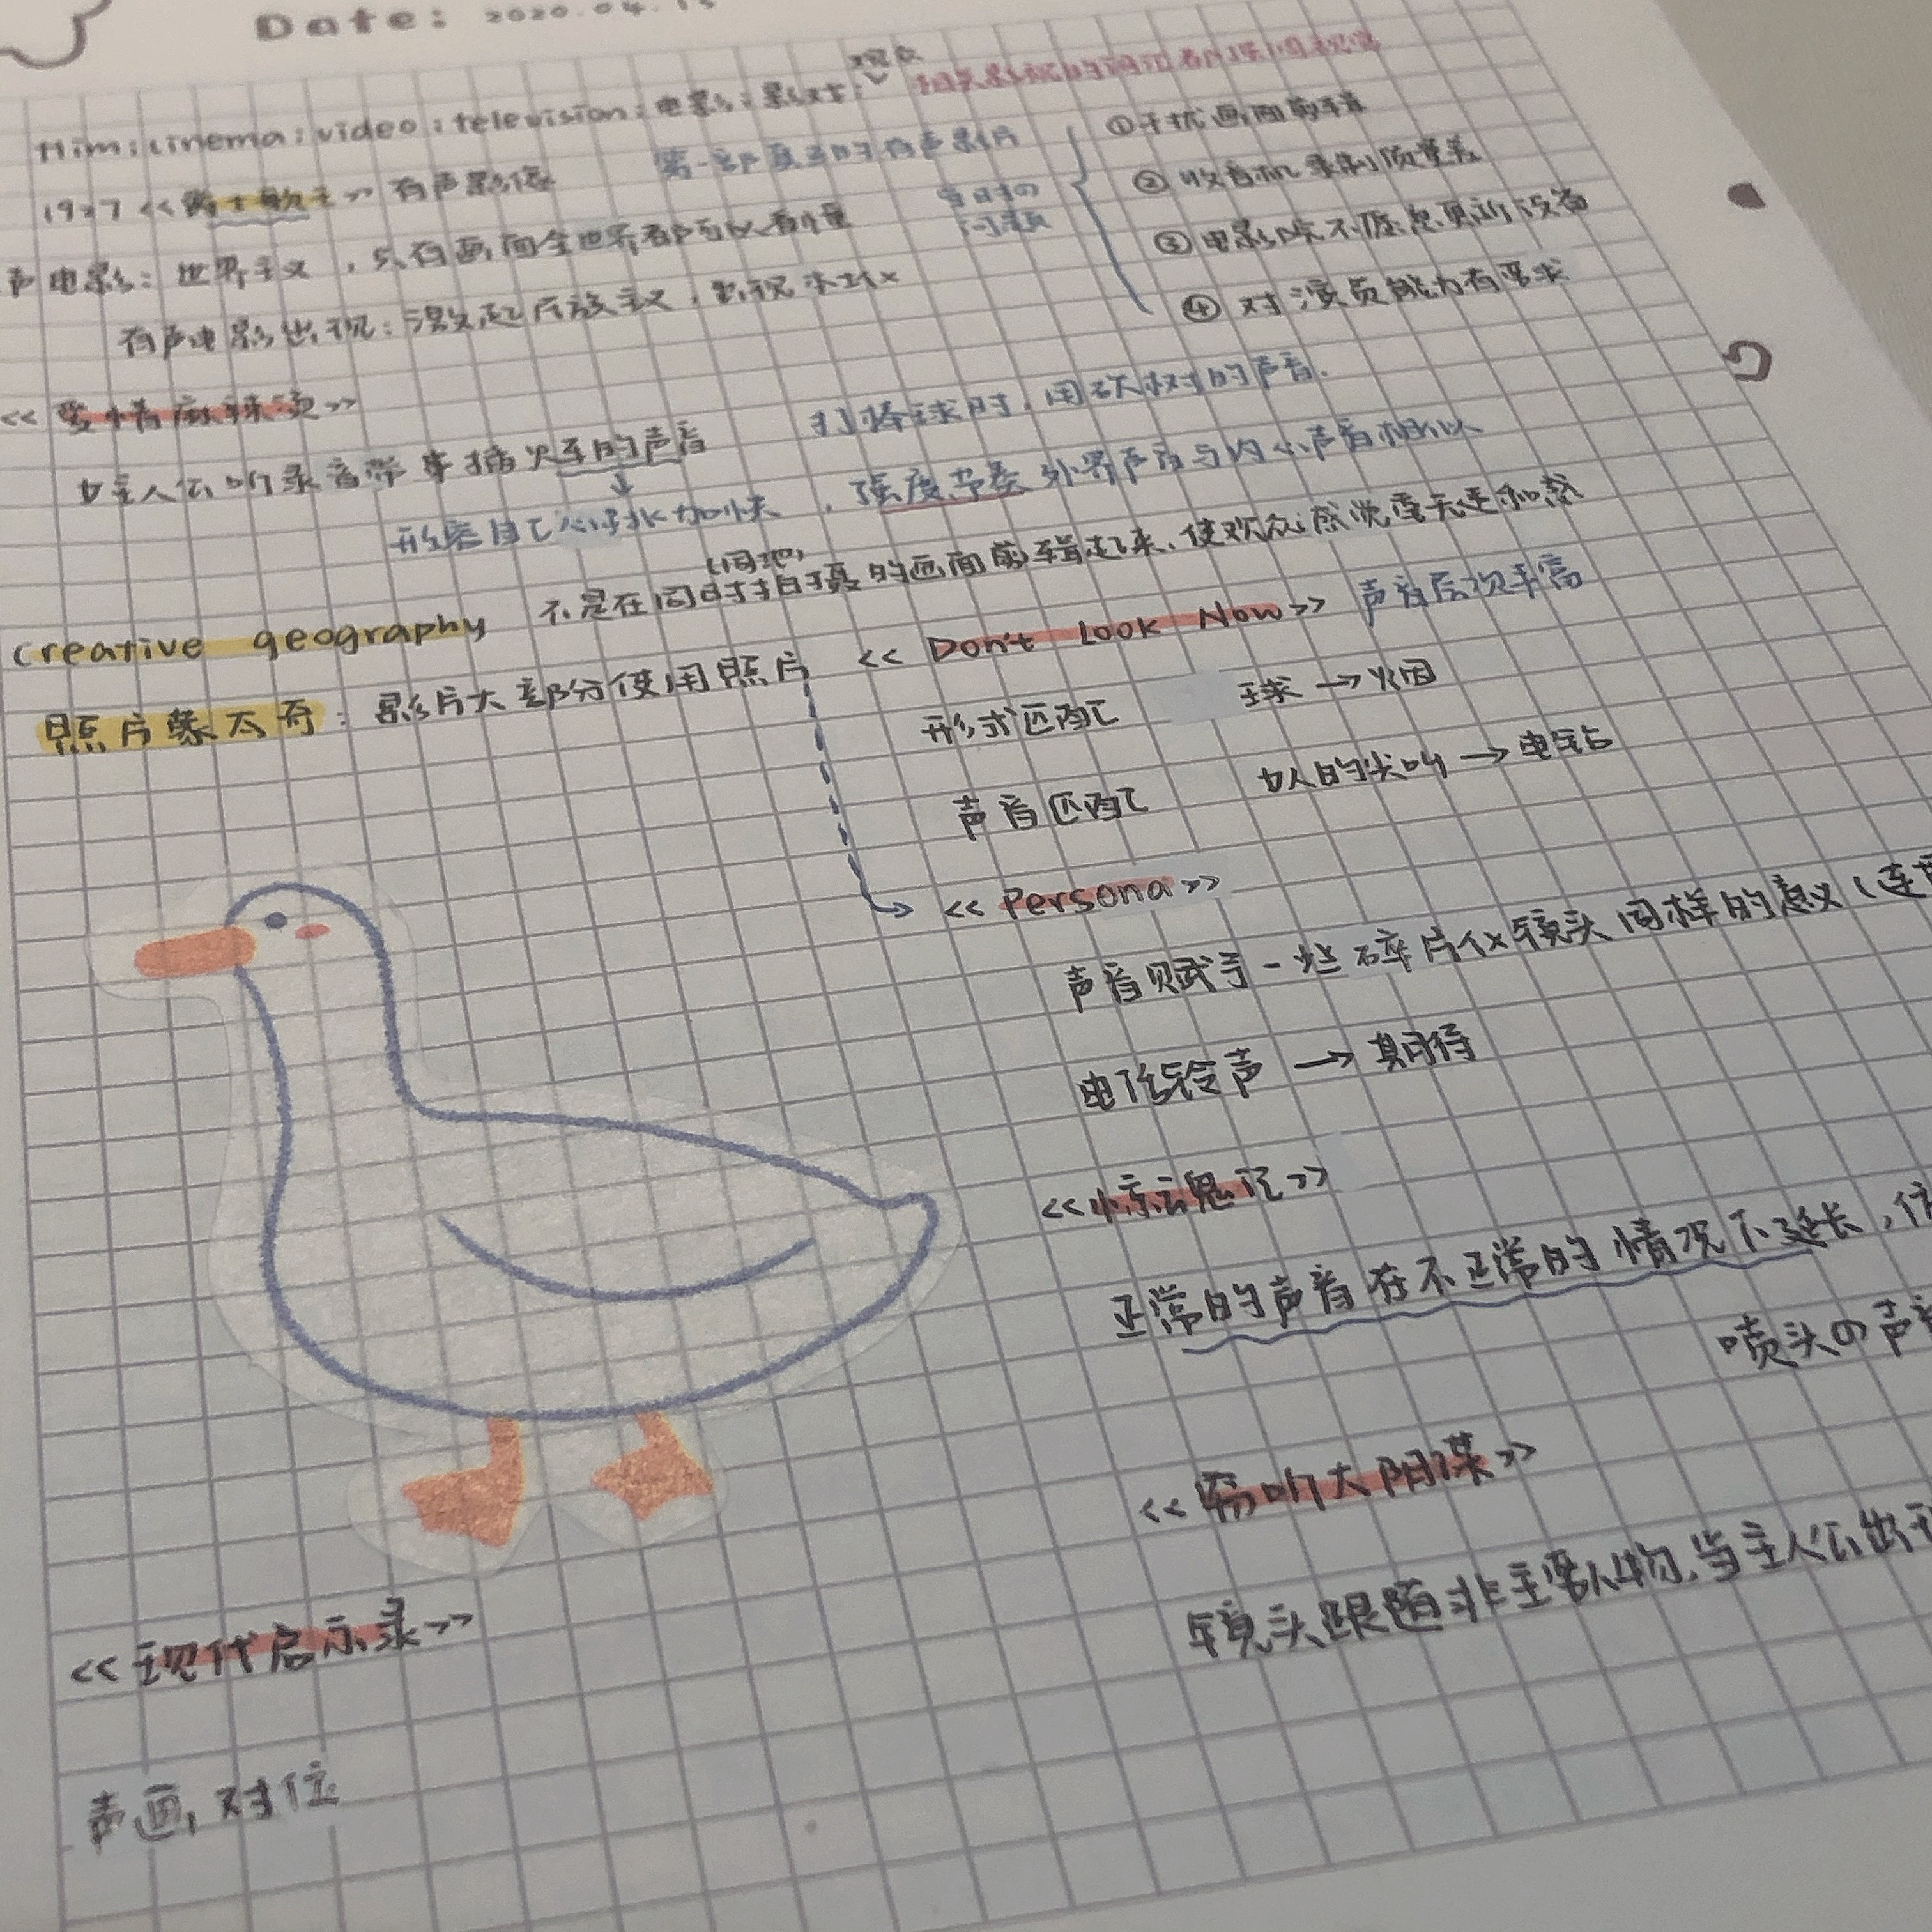 Date: 2020.04.13
film: cinema: video: television: 电影: 影像: 观众
1927 <<爵士歌王>> 有声影像
第一部真正的有声影片
当时の
问题
①干扰画面剪辑
②收音机录制质量差
③电影院不愿意更新设备
④对演员能力有要求
声电影: 世界主义, 只有画面全世界都可以看懂
有声电影出现: 激起民族主义, 出现
<<爱情麻辣烫>>
女主人公听录音带里播火车的声音
打棒球时, 用砍树的声音.
形容自己心跳加快, 强度节奏 外界声音与内心声音相似
creative geography 不是在同时(同地)拍摄的画面剪辑起来, 使观众感觉
照片蒙太奇: 影片大部分使用照片
<<Don't Look Now>> 声音层次丰富
形式匹配 球→烟
声音匹配 女人的尖叫→电钻
<<Persona>>
声音赋予一些碎片化镜头同样的意义(连
电话铃声→期待
<<惊魂记>>
正常的声音在不正常的情况下延长,
喷头の声音
<<窃听大阴谋>>
镜头跟随非主要人物,当主人公出
<<现代启示录>>
声画,对位